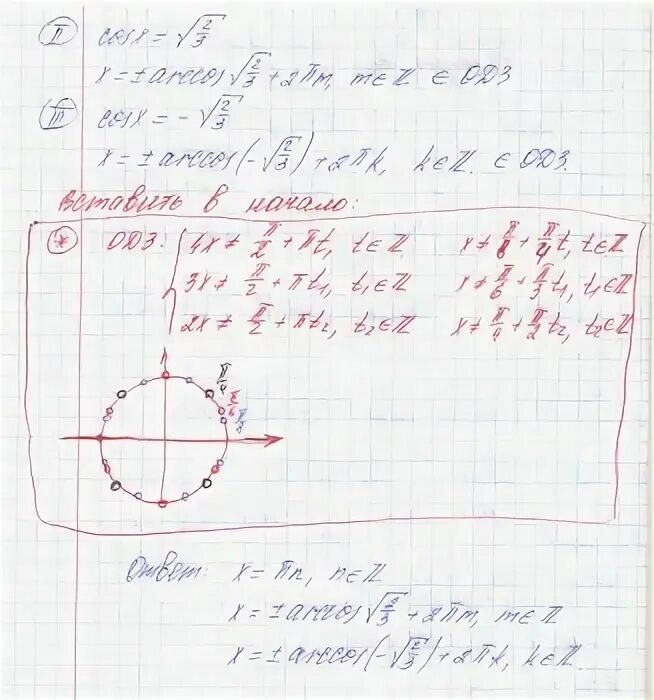 II cosx = √(2/3)
x = ± arccos √(2/3) + 2πm, m∈ℤ ∈ ОДЗ
III cosx = -√(2/3)
x = ± arccos(-√(2/3)) + 2πk, k∈ℤ. ∈ ОДЗ.
Вставить в начало:
* ОДЗ: { 4x ≠ π/2 + πt, t∈ℤ x ≠ π/8 + π/4 t, t∈ℤ
3x ≠ π/2 + πt₁, t₁∈ℤ x ≠ π/6 + π/3 t₁, t₁∈ℤ
2x ≠ π/2 + πt₂, t₂∈ℤ x ≠ π/4 + π/2 t₂, t₂∈ℤ
π/4
π/6
π/8
Ответ: x = πn, n∈ℤ
x = ± arccos √(2/3) + 2πm, m∈ℤ
x = ± arccos(-√(2/3)) + 2πk, k∈ℤ.